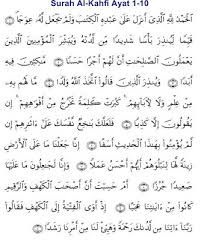 Surah Al-Kahfi Ayat 1-10
ٱلْحَمْدُ لِلَّهِ ٱلَّذِىٓ أَنزَلَ عَلَىٰ عَبْدِهِ ٱلْكِتَٰبَ وَلَمْ يَجْعَل لَّهُۥ عِوَجَا ۜ ۝١
قَيِّمًا لِّيُنذِرَ بَأْسًا شَدِيدًا مِّن لَّدُنْهُ وَيُبَشِّرَ ٱلْمُؤْمِنِينَ ٱلَّذِينَ
يَعْمَلُونَ ٱلصَّٰلِحَٰتِ أَنَّ لَهُمْ أَجْرًا حَسَنًا ۝٢ مَّٰكِثِينَ فِيهِ
أَبَدًا ۝٣ وَيُنذِرَ ٱلَّذِينَ قَالُوا۟ ٱتَّخَذَ ٱللَّهُ وَلَدًا ۝٤ مَّا لَهُم بِهِۦ
مِنْ عِلْمٍ وَلَا لِـَٔابَآئِهِمْ ۚ كَبُرَتْ كَلِمَةً تَخْرُجُ مِنْ أَفْوَٰهِهِمْ ۚ إِن
يَقُولُونَ إِلَّا كَذِبًا ۝٥ فَلَعَلَّكَ بَٰخِعٌ نَّفْسَكَ عَلَىٰٓ ءَاثَٰرِهِمْ إِن
لَّمْ يُؤْمِنُوا۟ بِهَٰذَا ٱلْحَدِيثِ أَسَفًا ۝٦ إِنَّا جَعَلْنَا مَا عَلَى ٱلْأَرْضِ
زِينَةً لَّهَا لِنَبْلُوَهُمْ أَيُّهُمْ أَحْسَنُ عَمَلًا ۝٧ وَإِنَّا لَجَٰعِلُونَ مَا عَلَيْهَا
صَعِيدًا جُرُزًا ۝٨ أَمْ حَسِبْتَ أَنَّ أَصْحَٰبَ ٱلْكَهْفِ وَٱلرَّقِيمِ
كَانُوا۟ مِنْ ءَايَٰتِنَا عَجَبًا ۝٩ إِذْ أَوَى ٱلْفِتْيَةُ إِلَى ٱلْكَهْفِ فَقَالُوا۟
رَبَّنَآ ءَاتِنَا مِن لَّدُنكَ رَحْمَةً وَهَيِّئْ لَنَا مِنْ أَمْرِنَا رَشَدًا ۝١٠